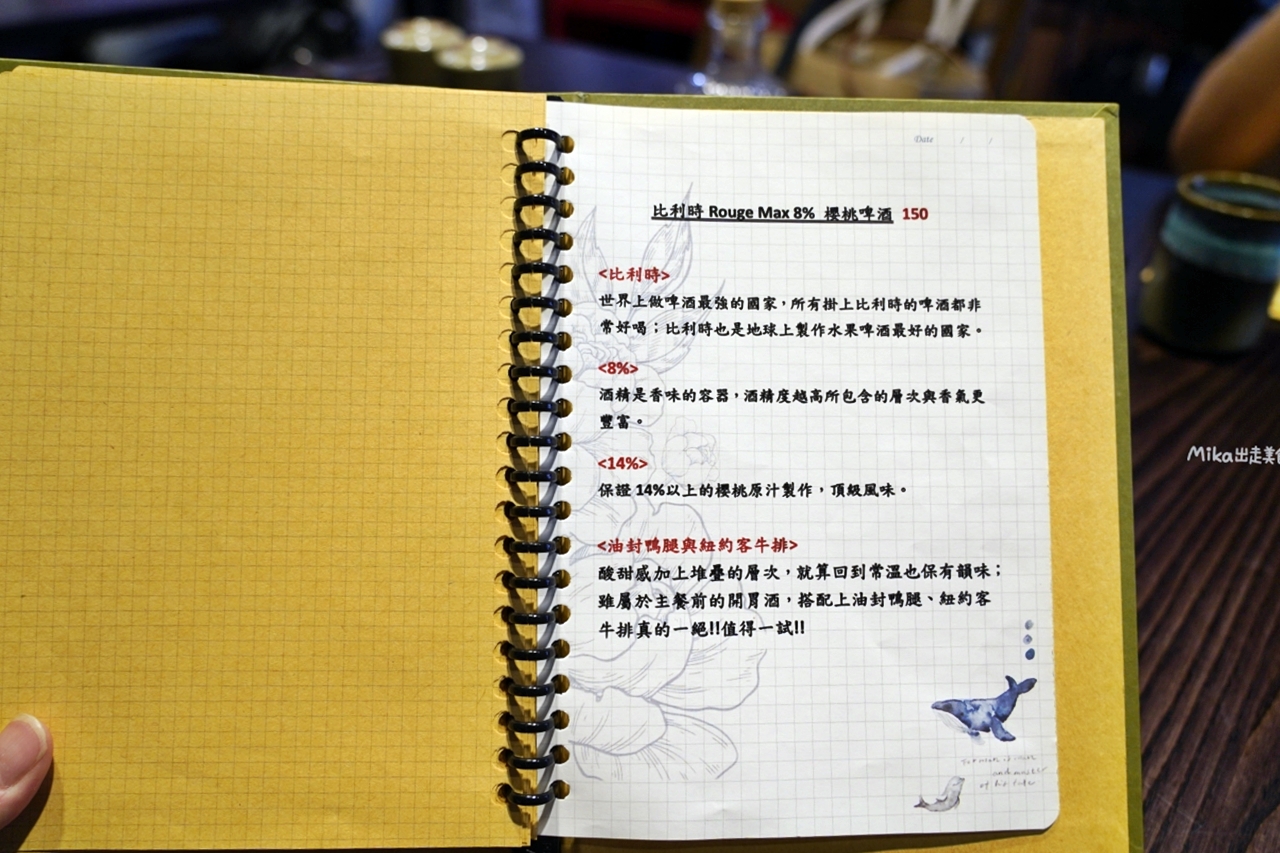 Date / /
比利時 Rouge Max 8% 櫻桃啤酒 150
<比利時>
世界上做啤酒最強的國家，所有掛上比利時的啤酒都非
常好喝；比利時也是地球上製作水果啤酒最好的國家。
<8%>
酒精是香味的容器，酒精度越高所包含的層次與香氣更
豐富。
<14%>
保證 14%以上的櫻桃原汁製作，頂級風味。
<油封鴨腿與紐約客牛排>
酸甜感加上堆疊的層次，就算回到常溫也保有韻味；
雖屬於主餐前的開胃酒，搭配上油封鴨腿、紐約客
牛排真的一絕!!值得一試!!
Mika出走美